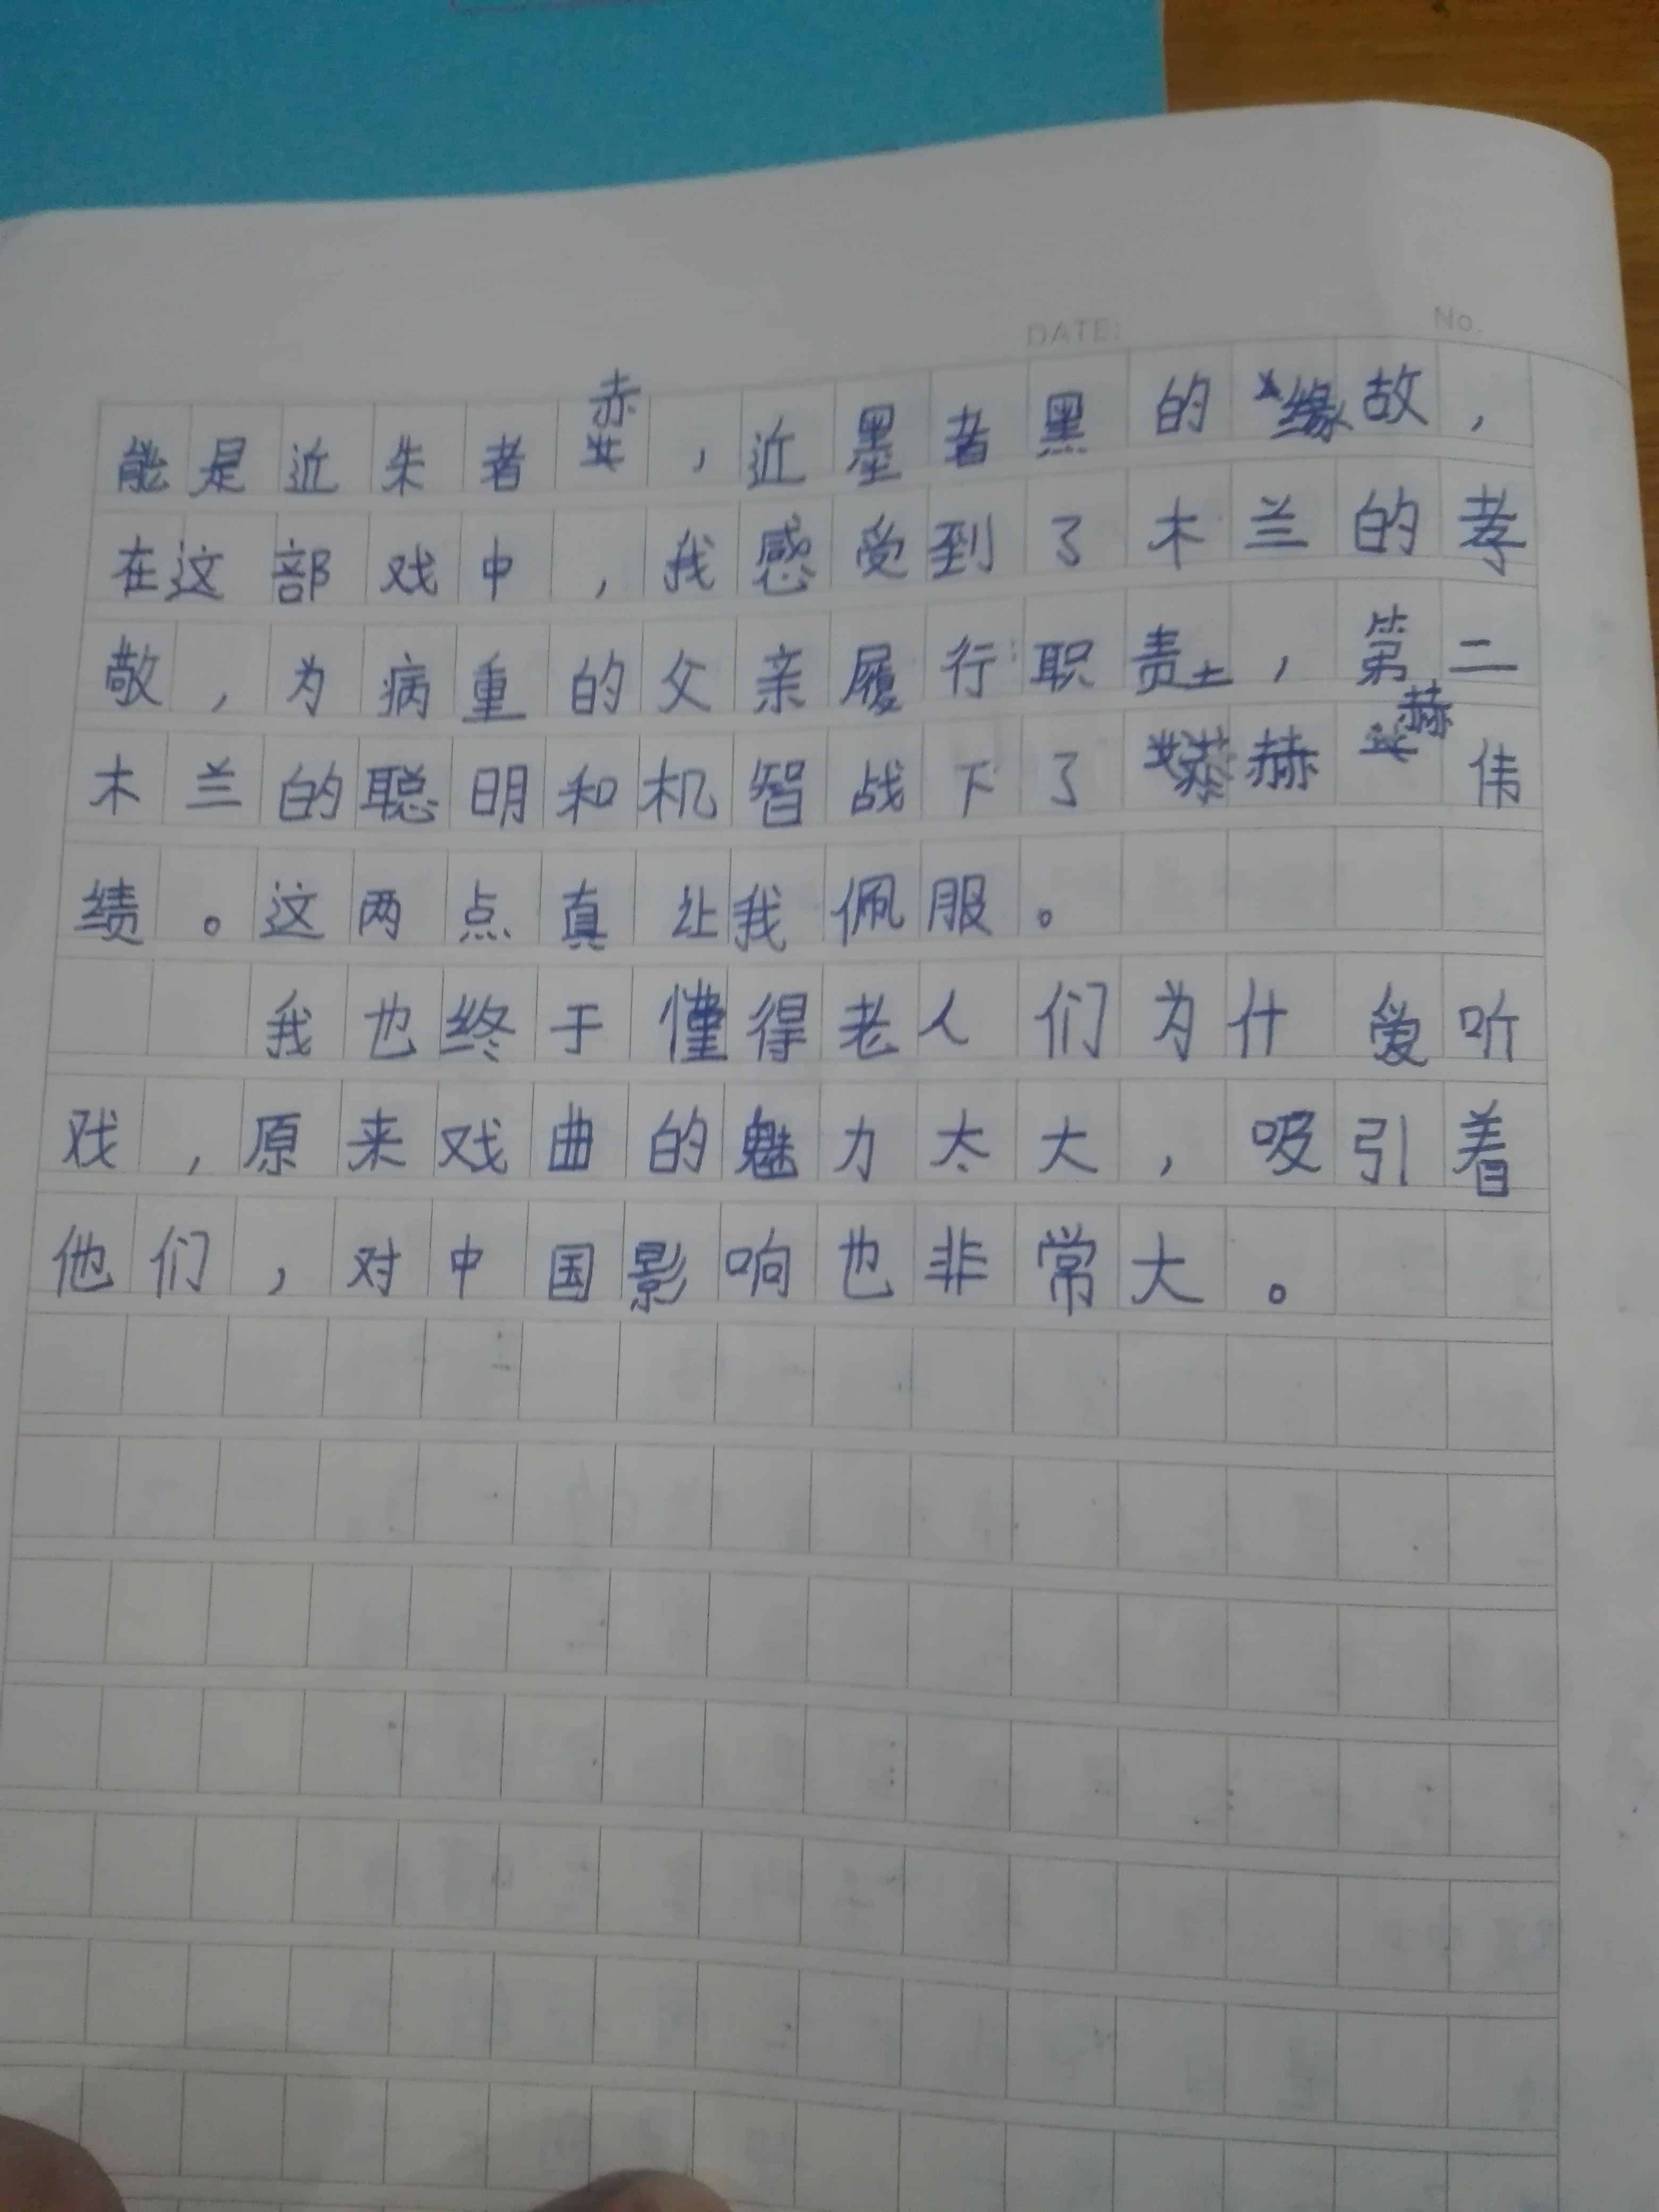 DATE: No.
能是近朱者赤，近墨者黑的缘故，
在这部戏中，我感受到了木兰的孝
敬，为病重的父亲履行职责，第二
木兰的聪明和机智战下了赫赫伟
绩。这两点真让我佩服。
我也终于懂得老人们为什爱听
戏，原来戏曲的魅力太大，吸引着
他们，对中国影响也非常大。